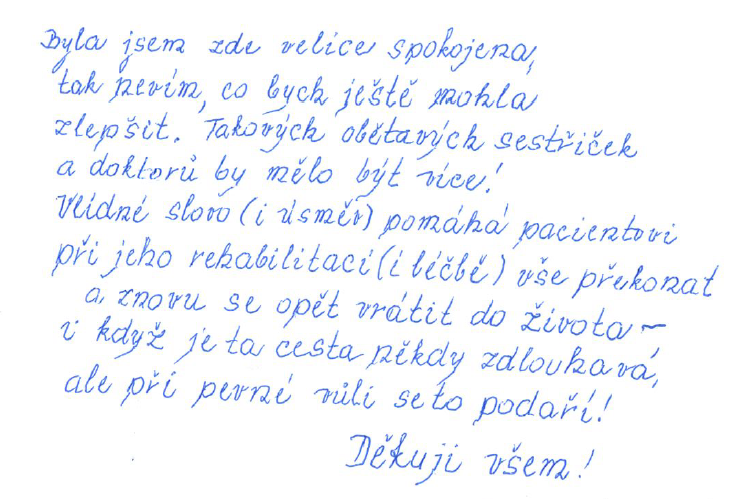 Byla jsem zde velice spokojena,
tak nevím, co bych ještě mohla
zlepšit. Takových obětavých sestřiček
a doktorů by mělo být více!
Vlídné slovo (i úsměv) pomáhá pacientovi
při jeho rehabilitaci (i léčbě) vše překonat
a znovu se opět vrátit do života –
i když je ta cesta někdy zdlouhavá,
ale při pevné vůli se to podaří!
Děkuji všem!